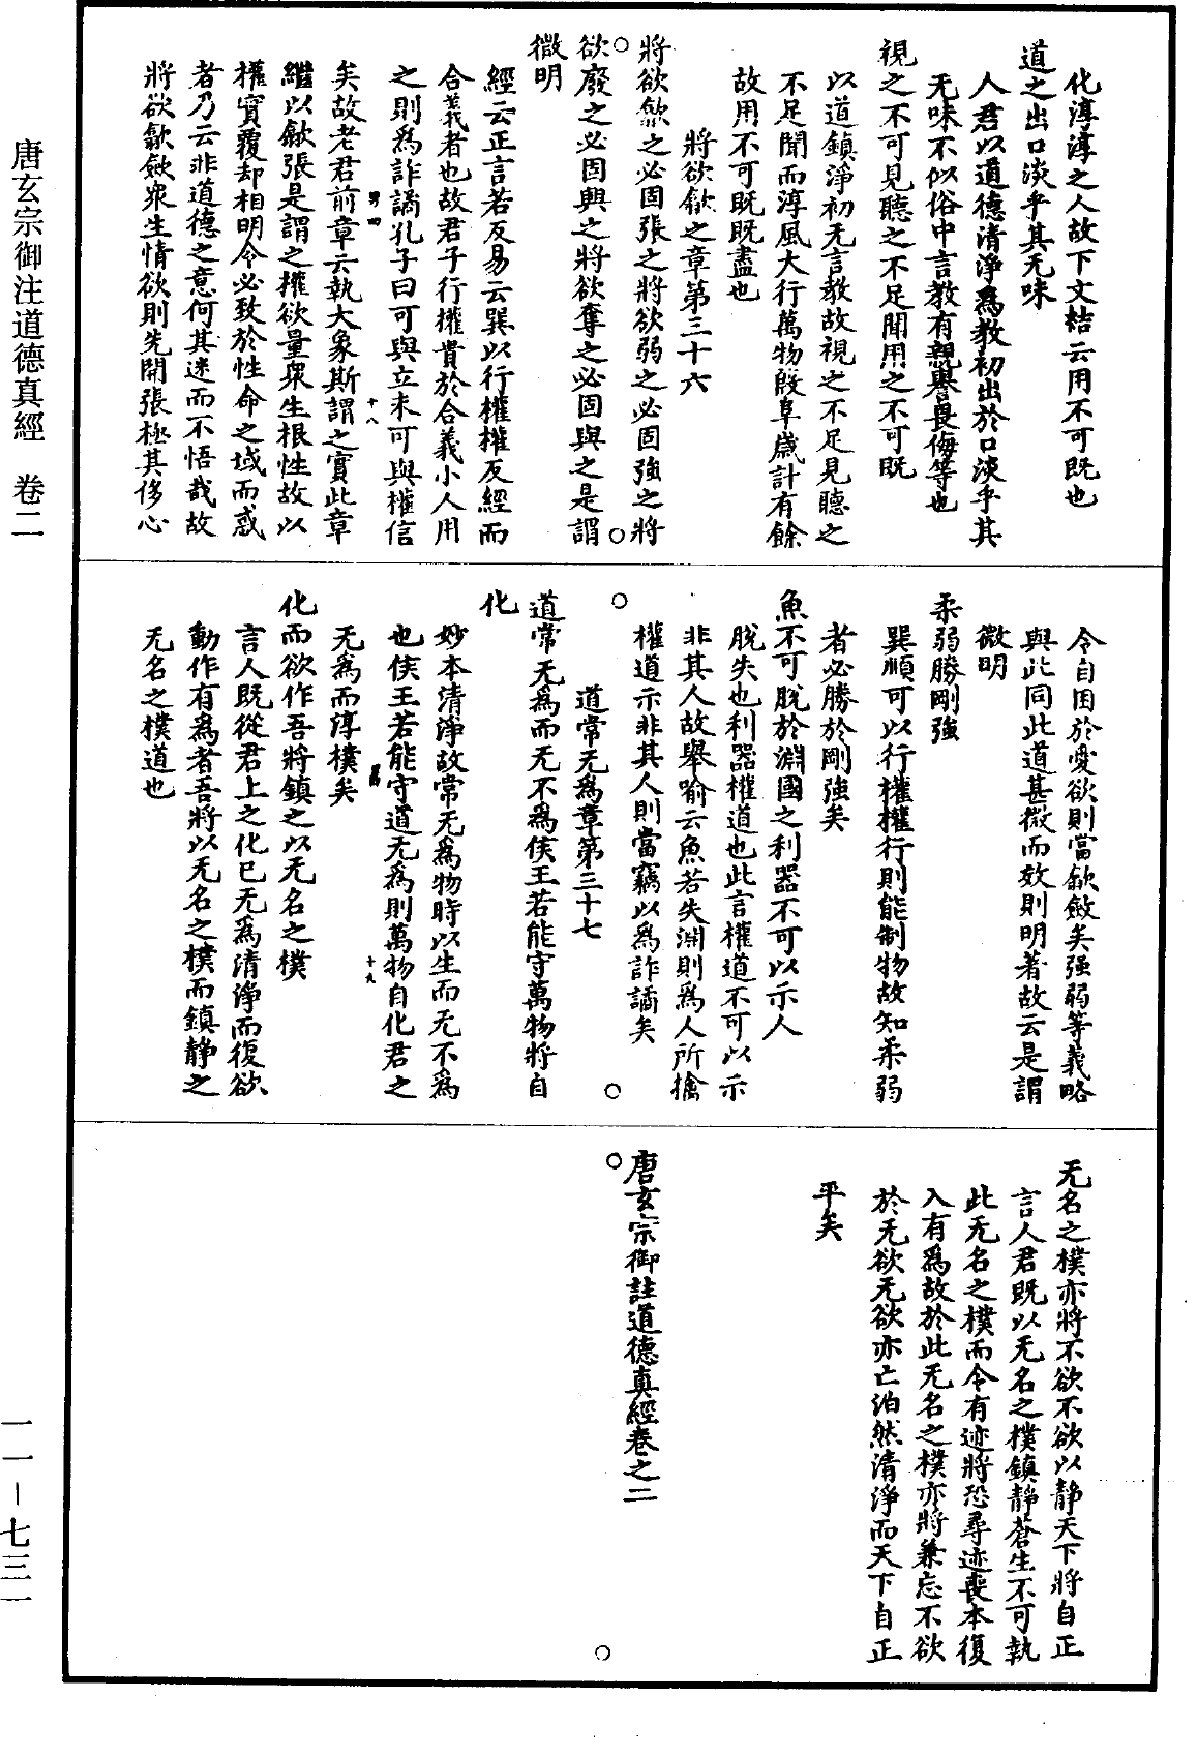 化淳淳之人故下文結云用不可既也
道之出口淡乎其无味
人君以道德清淨為教初出於口淡乎其
无味不似俗中言教有親譽畏侮等也
視之不可見聽之不足聞用之不可既
以道鎮淨初无言教故視之不足見聽之
不足聞而淳風大行萬物殷阜歲計有餘
故用不可既既盡也
將欲歙之章第三十六
將欲歙之必固張之將欲弱之必固強之將
欲廢之必固興之將欲奪之必固與之是謂
微明
經云正言若反易云巽以行權權反經而
合義者也故君子行權貴於合義小人用
之則為詐譎孔子曰可與立未可與權信
矣故老君前章云執大象斯謂之實此章
繼以歙張是謂之權欲量眾生根性故以
權實覆却相明令必致於性命之域而惑
者乃云非道德之意何其迷而不悟哉故
將欲歙斂眾生情欲則先開張極其侈心
令自困於愛欲則當歙斂矣强弱等義略
與此同此道甚微而效則明著故云是謂
微明
柔弱勝剛強
巽順可以行權權行則能制物故知柔弱
者必勝於剛強矣
魚不可脫於淵國之利器不可以示人
脫失也利器權道也此言權道不可以示
非其人故舉喻云魚若失淵則為人所擒
權道示非其人則當竊以為詐譎矣
道常无為章第三十七
道常无為而无不為侯王若能守萬物將自
化
妙本清淨故常无為物時以生而无不為
也侯王若能守道无為則萬物自化君之
无為而淳樸矣
化而欲作吾將鎮之以无名之樸
言人既從君上之化已无為清淨而復欲
動作有為者吾將以无名之樸而鎮靜之
无名之樸道也
无名之樸亦將不欲不欲以靜天下將自正
言人君既以无名之樸鎮靜蒼生不可執
此无名之樸而令有迹將恐尋迹喪本復
入有為故於此无名之樸亦將兼忘不欲
於无欲无欲亦亡泊然清淨而天下自正
平矣
唐玄宗御註道德真經卷之二
唐玄宗御注道德真經 卷二
一一－七三一
十八
十九